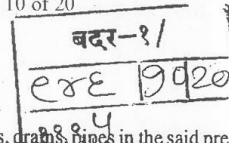 10 of 20
बदर-१/
९४६ १७ 20
१९१५
s, drains, pipes in the said pre